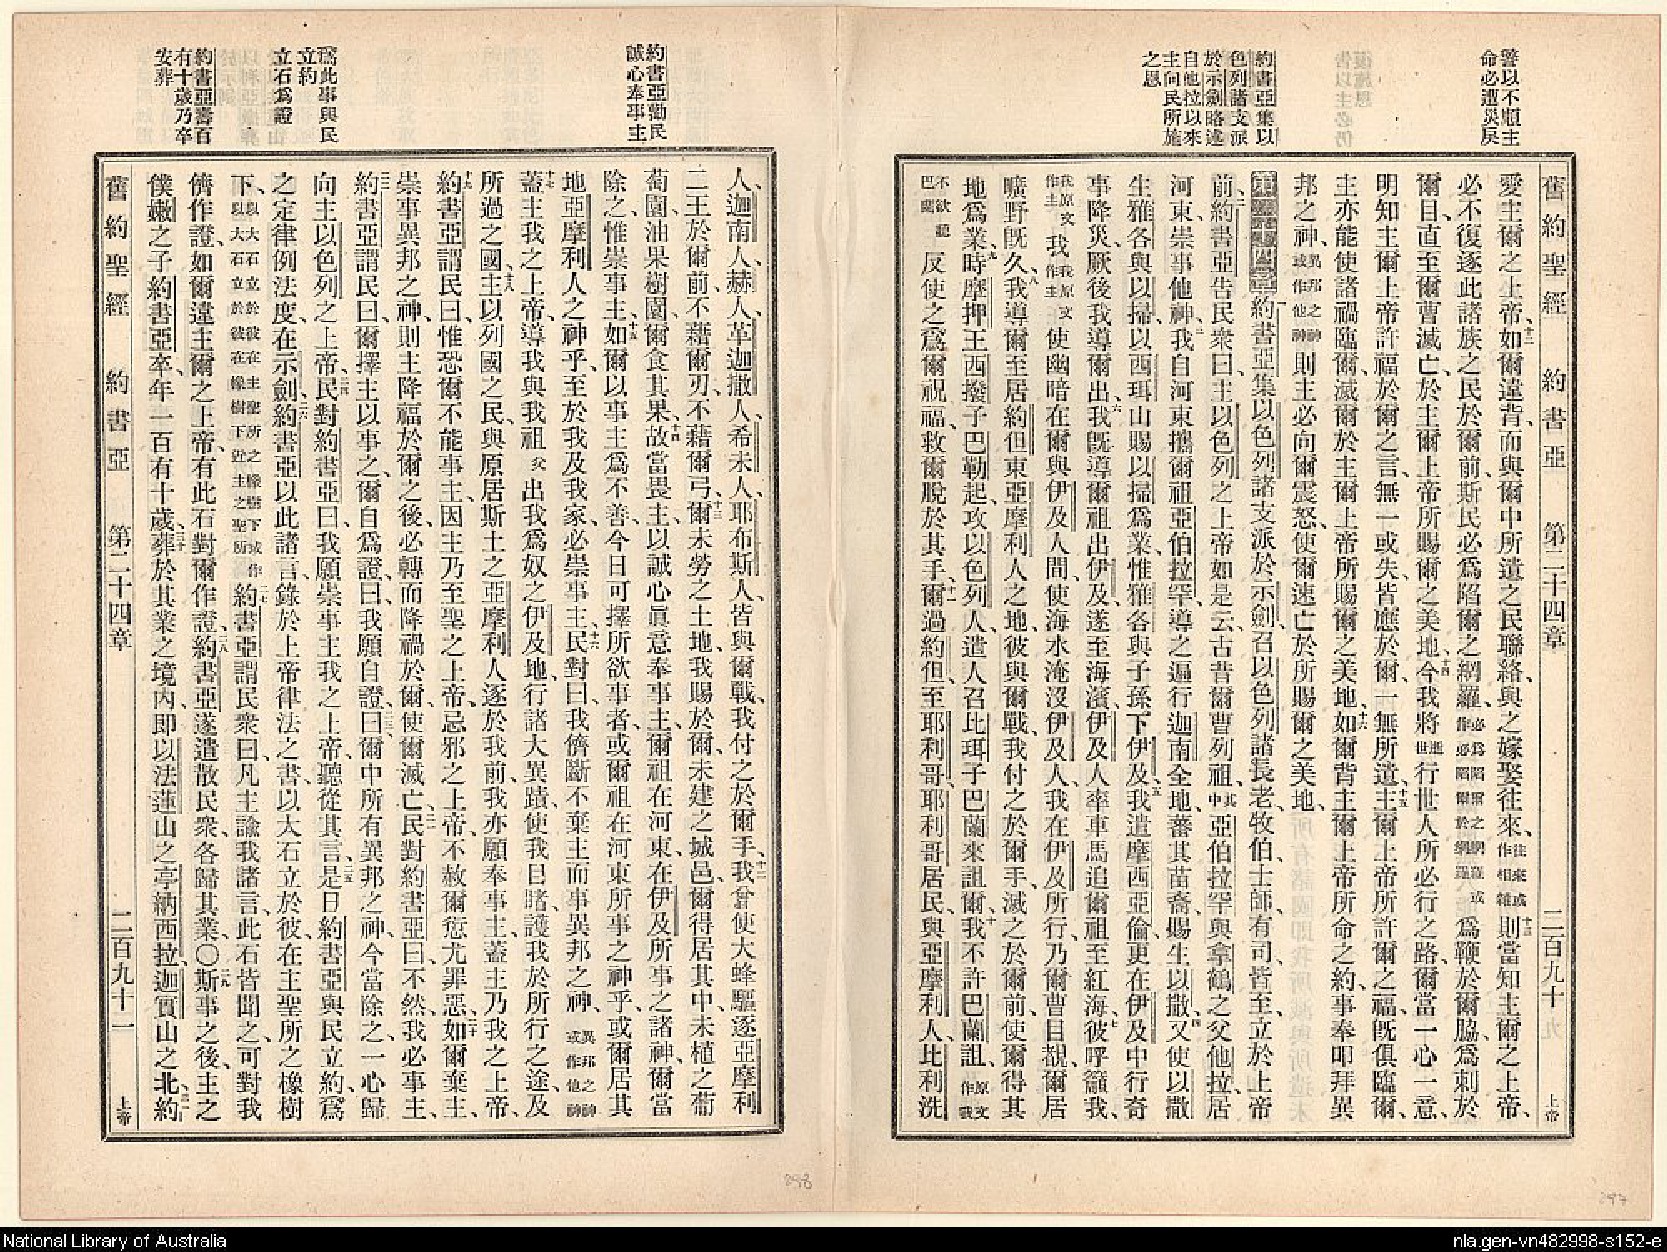 警以不順主
命必遭災戾
約書亞集以
色列諸支派
於示劍略述
自他拉以來
主向民所施
之恩
舊約聖經 約書亞 第二十四章 二百九十 上帝
愛主爾之上帝、十二如爾違背、而與爾中所遺之民聯絡、與之嫁娶往來、往來或作相雜十三則當知主爾之上帝、
必不復逐此諸族之民於爾前、斯民必爲陷爾之網羅、必爲陷爾之網羅或作必陷爾於網羅爲鞭於爾脇、爲刺於
爾目、直至爾曹滅亡於主爾上帝所賜爾之美地、十四今我將逝世行世人所必行之路、爾當一心一意、
明知主爾上帝許福於爾之言、無一或失、皆應於爾、一無所遺、十五主爾上帝所許爾之福、旣俱臨爾、
主亦能使諸禍臨爾、滅爾於主爾上帝所賜爾之美地、十六如爾背主爾上帝所命之約、事奉叩拜異
邦之神、異邦之神或作他神則主必向爾震怒、使爾速亡於所賜爾之美地、
第二十四章 約書亞集以色列諸支派於示劍、召以色列諸長老、牧伯、士師、有司、皆至、立於上帝
前、二約書亞告民衆曰、主以色列之上帝如是云、古昔爾曹列祖、其中亞伯拉罕與拿鶴之父他拉、居
河東、崇事他神、三我自河東攜爾祖亞伯拉罕、導之遍行迦南全地、蕃其苗裔、賜生以撒、四又使以撒
生雅各與以掃、以西珥山賜以掃爲業、惟雅各與子孫下伊及、五我遣摩西亞倫、更在伊及中行奇
事降災、厥後我導爾出、六我旣導爾祖出伊及、遂至海濱、伊及人率車馬追爾祖至紅海、七彼呼籲我、
我原文作主我我原文作主使幽暗在爾與伊及人間、使海水淹沒伊及人、我在伊及所行、乃爾曹目覩、爾居
曠野旣久、八我導爾至居約但東亞摩利人之地、彼與爾戰、我付之於爾手、滅之於爾前、使爾得其
地爲業、九時摩押王西撥子巴勒起攻以色列人、遣人召比珥子巴蘭來詛爾、十我不許巴蘭詛、原文作我
不欲聽巴蘭反使之爲爾祝福、救爾脫於其手、十一爾過約但至耶利哥、耶利哥居民、與亞摩利人、比利洗
約書亞勸民
誠心奉事主
爲此事與民
立約
立石爲證
約書亞壽百
有十歲乃卒
安葬
人、迦南人、赫人、革迦撒人、希未人、耶布斯人、皆與爾戰、我付之於爾手、十二我曾使大蜂驅逐亞摩利
二王於爾前、不藉爾刃、不藉爾弓、十三爾未勞之土地、我賜於爾、未建之城邑、爾得居其中、未植之葡
萄園、油果樹園、爾食其果、十四故當畏主、以誠心眞意奉事主、爾祖在河東在伊及所事之諸神、爾當
除之、惟崇事主、十五如爾以事主爲不善、今日可擇所欲事者、或爾祖在河東所事之神乎、或爾居其
地亞摩利人之神乎、至於我及我家、必崇事主、十六民對曰、我儕斷不棄主而事異邦之神、異邦之神或作他神
十七蓋主我之上帝、導我與我祖父出我爲奴之伊及地、行諸大異蹟、使我目睹、護我於所行之途、及
所過之國、十八主以列國之民、與原居斯土之亞摩利人、逐於我前、我亦願奉事主、蓋主乃我之上帝、
十九約書亞謂民曰、惟恐爾不能事主、因主乃至聖之上帝、忌邪之上帝、不赦爾愆尤罪惡、二十如爾棄主、
崇事異邦之神、則主降福於爾之後、必轉而降禍於爾、使爾滅亡、二一民對約書亞曰、不然、我必事主、
二二約書亞謂民曰、爾擇主以事之、爾自爲證、曰、我願自證、二三曰、爾中所有異邦之神、今當除之、一心歸
向主以色列之上帝、二四民對約書亞曰、我願崇事主我之上帝、聽從其言、二五是日約書亞與民立約、爲
之定律例法度、在示劍、二六約書亞以此諸言、錄於上帝律法之書、以大石立於彼在主聖所之橡樹
下、以大石立於彼在主聖所之橡樹下或作以大石立於彼在橡樹下近主之聖所二七約書亞謂民衆曰、凡主諭我諸言、此石皆聞之、可對我
儕作證、如爾違主爾之上帝、有此石對爾作證、二八約書亞遂遣散民衆、各歸其業、〇二九斯事之後、主之
僕嫩之子約書亞卒、年一百有十歲、三十葬於其業之境內、卽以法蓮山之亭納西拉、迦實山之北、三一約
舊約聖經 約書亞 第二十四章 二百九十一 上帝
298
297
National Library of Australia
nla.gen-vn482998-s152-e